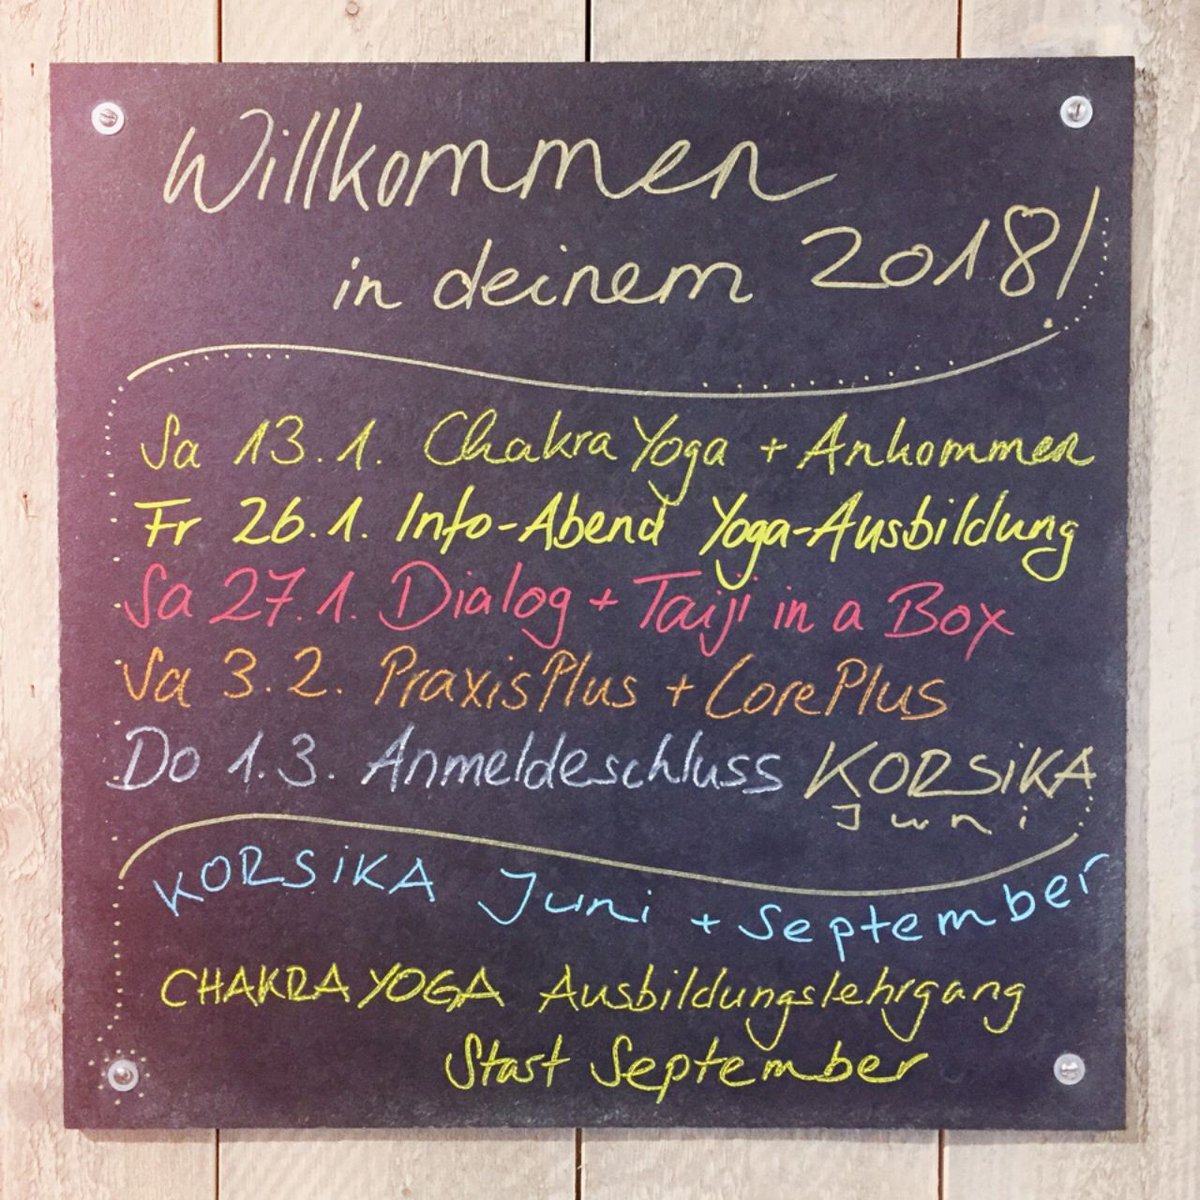 Willkommen
in deinem 2018!
Sa 13.1. Chakra Yoga + Ankommen
Fr 26.1. Info-Abend Yoga-Ausbildung
Sa 27.1. Dialog + Taiji in a Box
Sa 3.2. PraxisPlus + CorePlus
Do 1.3. Anmeldeschluss KORSiKA
Juni
KORSiKA Juni + September
CHAKRA YOGA Ausbildungslehrgang
Start September